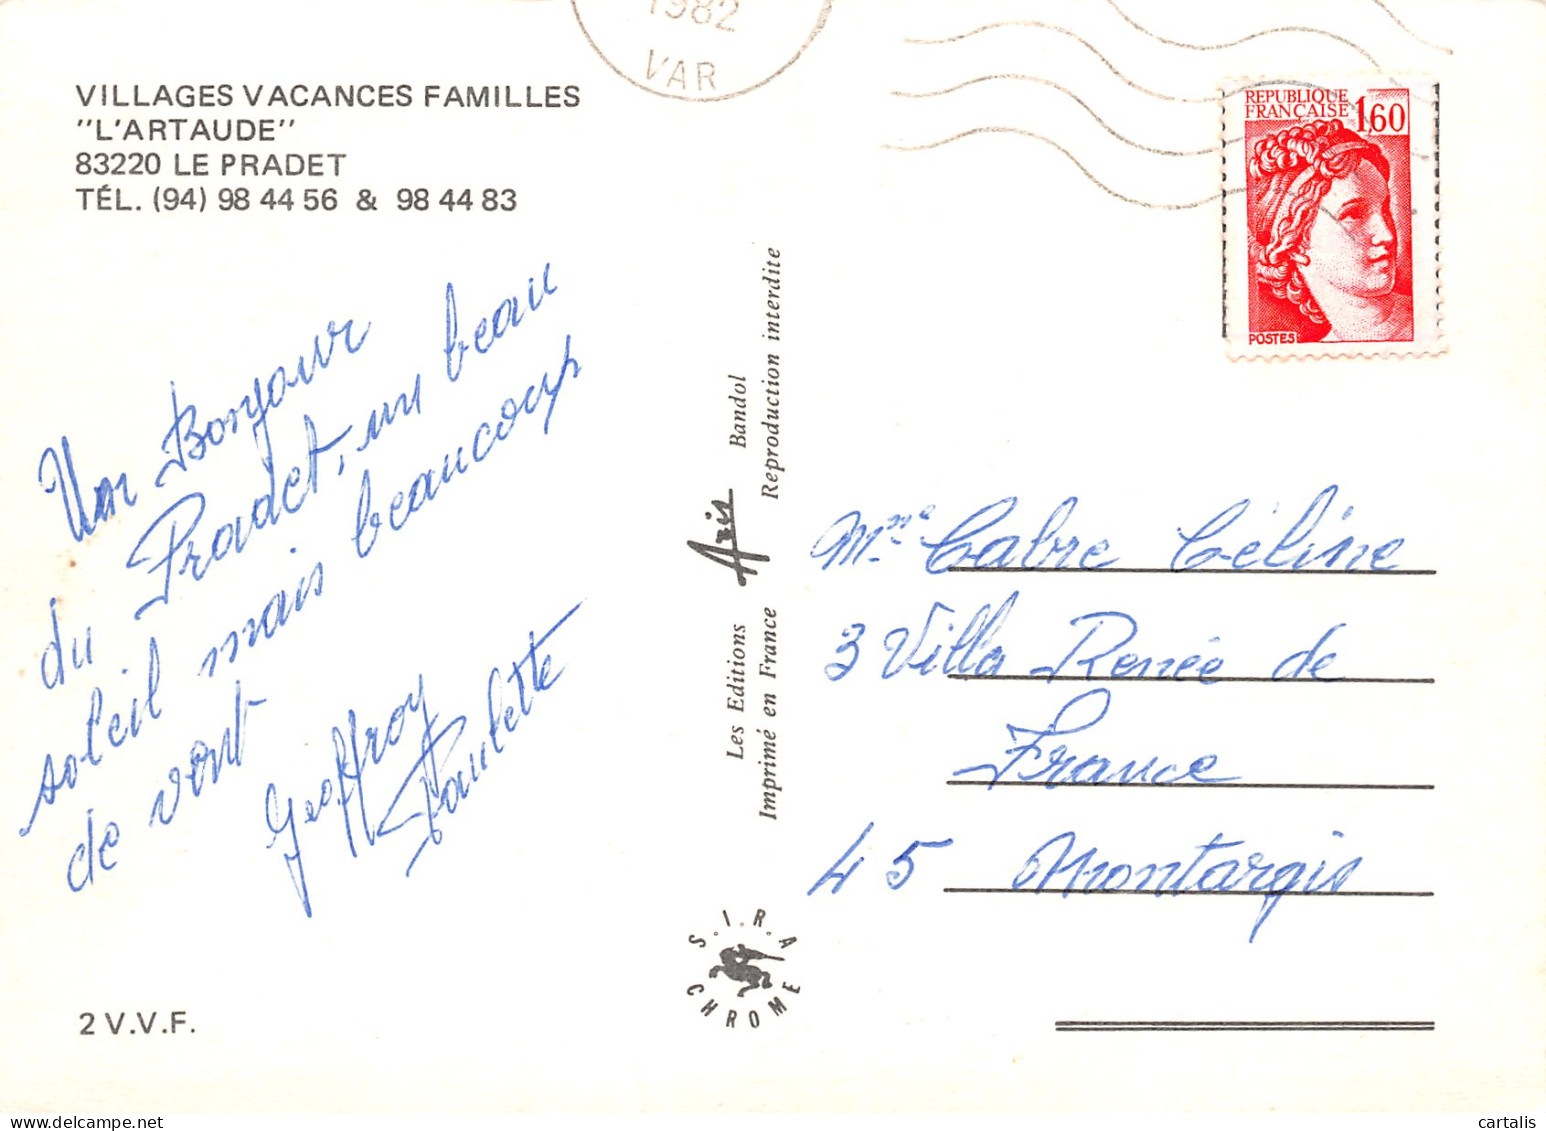 1982
VAR
VILLAGES VACANCES FAMILLES
"L'ARTAUDE"
83220 LE PRADET
TÉL. (94) 98 44 56 & 98 44 83
REPUBLIQUE
FRANÇAISE 1,60
POSTES
Un Bonjour
du Pradet, un beau
soleil mais beaucoup
de vent
Geoffroy
Paulette
Les Editions Aris Bandol
Imprimé en France Reproduction interdite
Mme Cabre Céline
3 Villa Renée de
France
45 Montargis
S.I.R.A
CHROME
2 V.V.F.
cartalis
www.delcampe.net